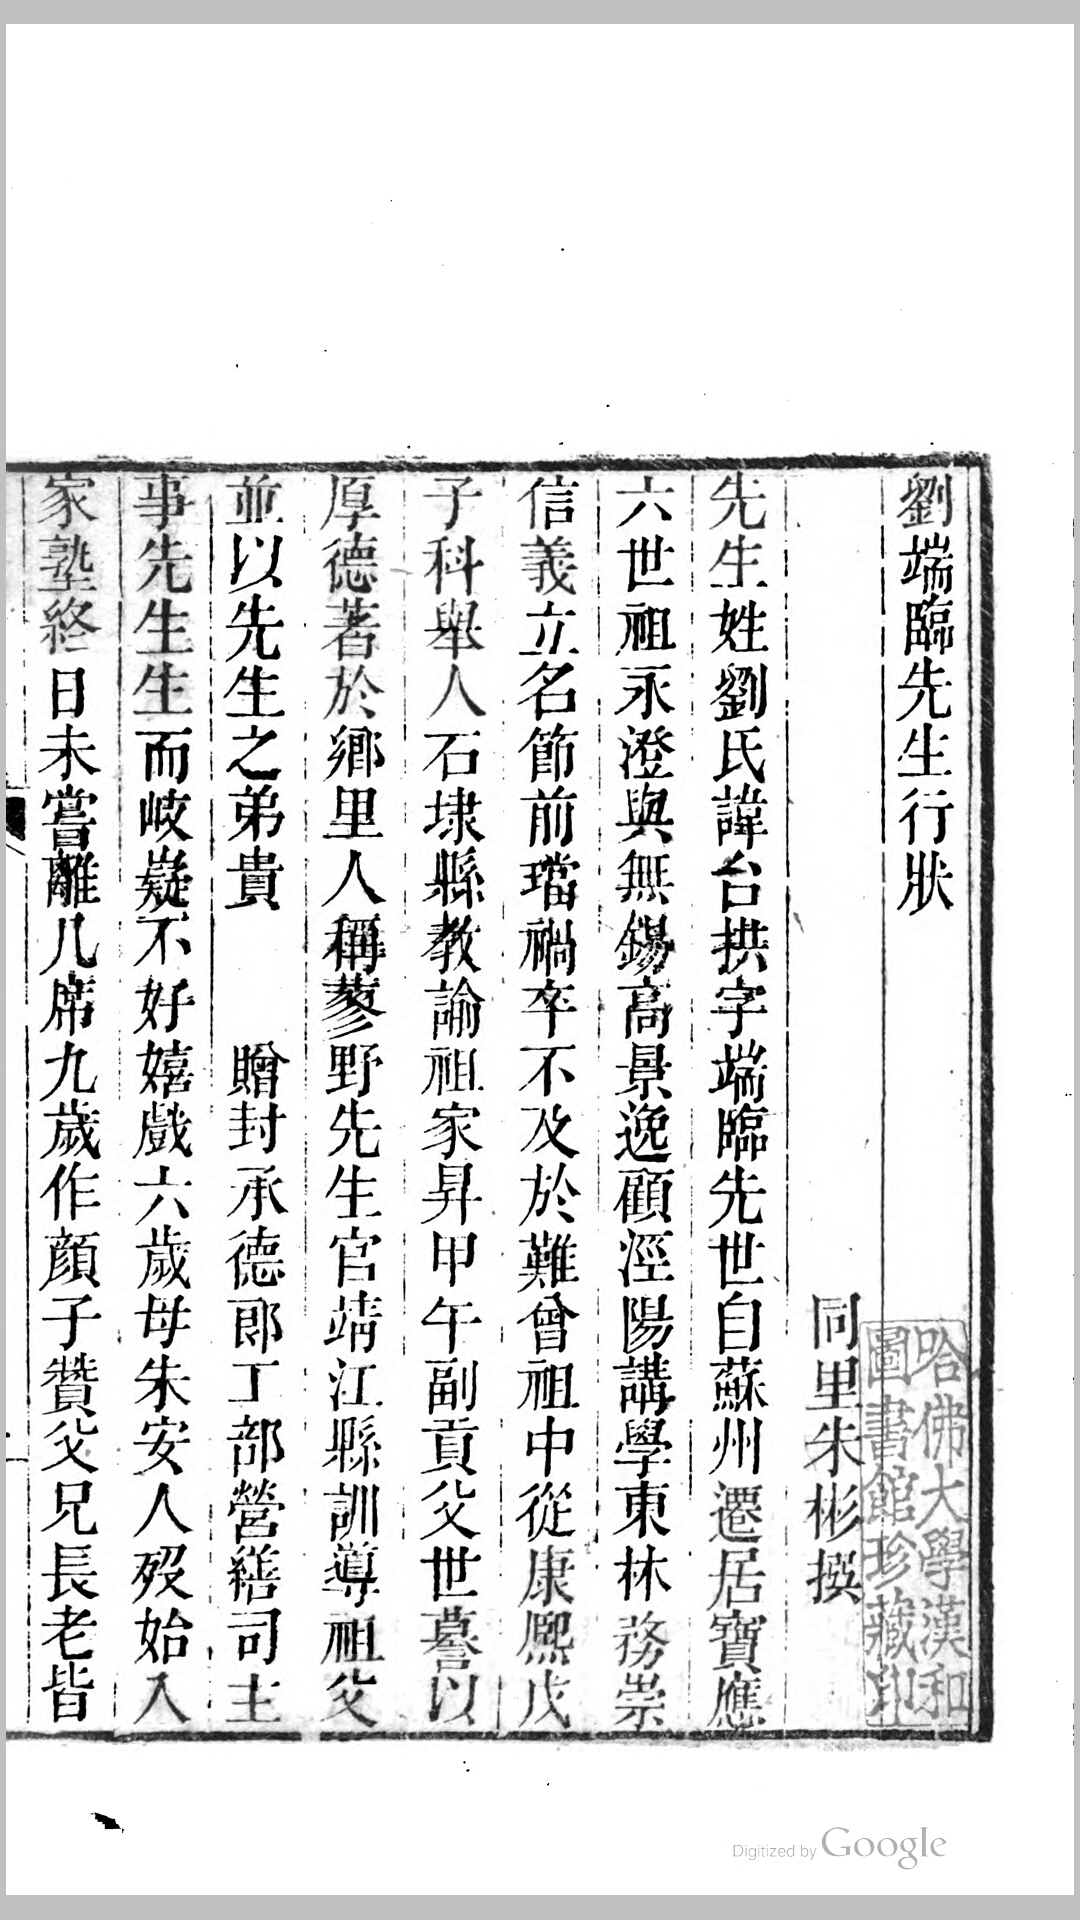 劉端臨先生行狀
同里朱彬撰
先生姓劉氏諱台拱字端臨先世自蘇州遷居寶應
六世祖永澄與無錫高景逸顧涇陽講學東林務崇
信義立名節前璫禍卒不及於難曾祖中從康熙戊
子科舉人石埭縣教諭祖家昇甲午副貢父世䜈以
厚德著於鄉里人稱蓼野先生官靖江縣訓導祖父
並以先生之弟貴　贈封承德郎工部營繕司主
事先生生而岐嶷不好嬉戲六歲母朱安人歿始入
家塾終日未嘗離几席九歲作顏子贊父兄長老皆
哈佛大學漢和
圖書館珍藏印
Digitized by Google